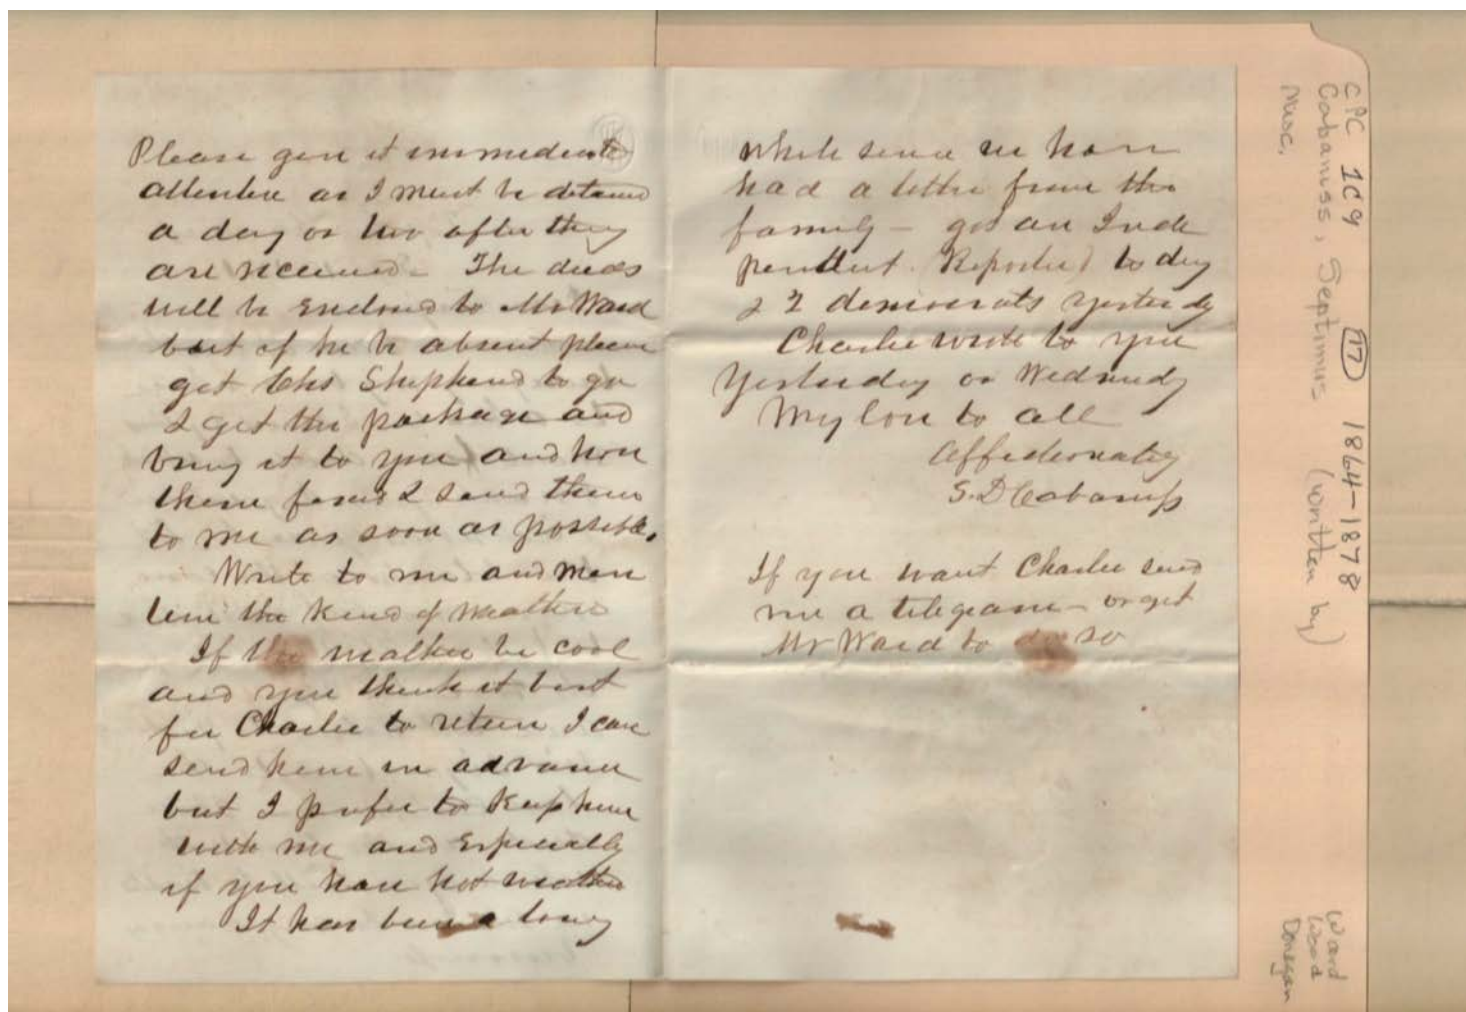 Please give it immediate
attention as I must be detained
a day or two after they
are received – The deeds
will be enclosed to Mr Ward
but if he be absent please
get Shepherd to go
& get the package and
bring it to you and have
them & send them
to me as soon as possible.
Write to me and men
tion the kind of weather
If the weather be cool
and you think it best
for Charlie to return I can
send him in advance
but I prefer to keep him
with me and Especially
if you have hot weather
It has been a long
while since we have
had a letter from the
family – got an Inde
pendent. Reported to day
& 2 democrats yesterday
Charlie wrote to you
Yesterday or Wednesdy
My love to all
Affectionately
S. D Cabaniss
If you want Charlie send
me a telegram – or get
Mr Ward to do so
CPC 1d9 17 1864–1878
Cabaniss, Septimus (written by)
Misc.
Ward
Wood
Donegan